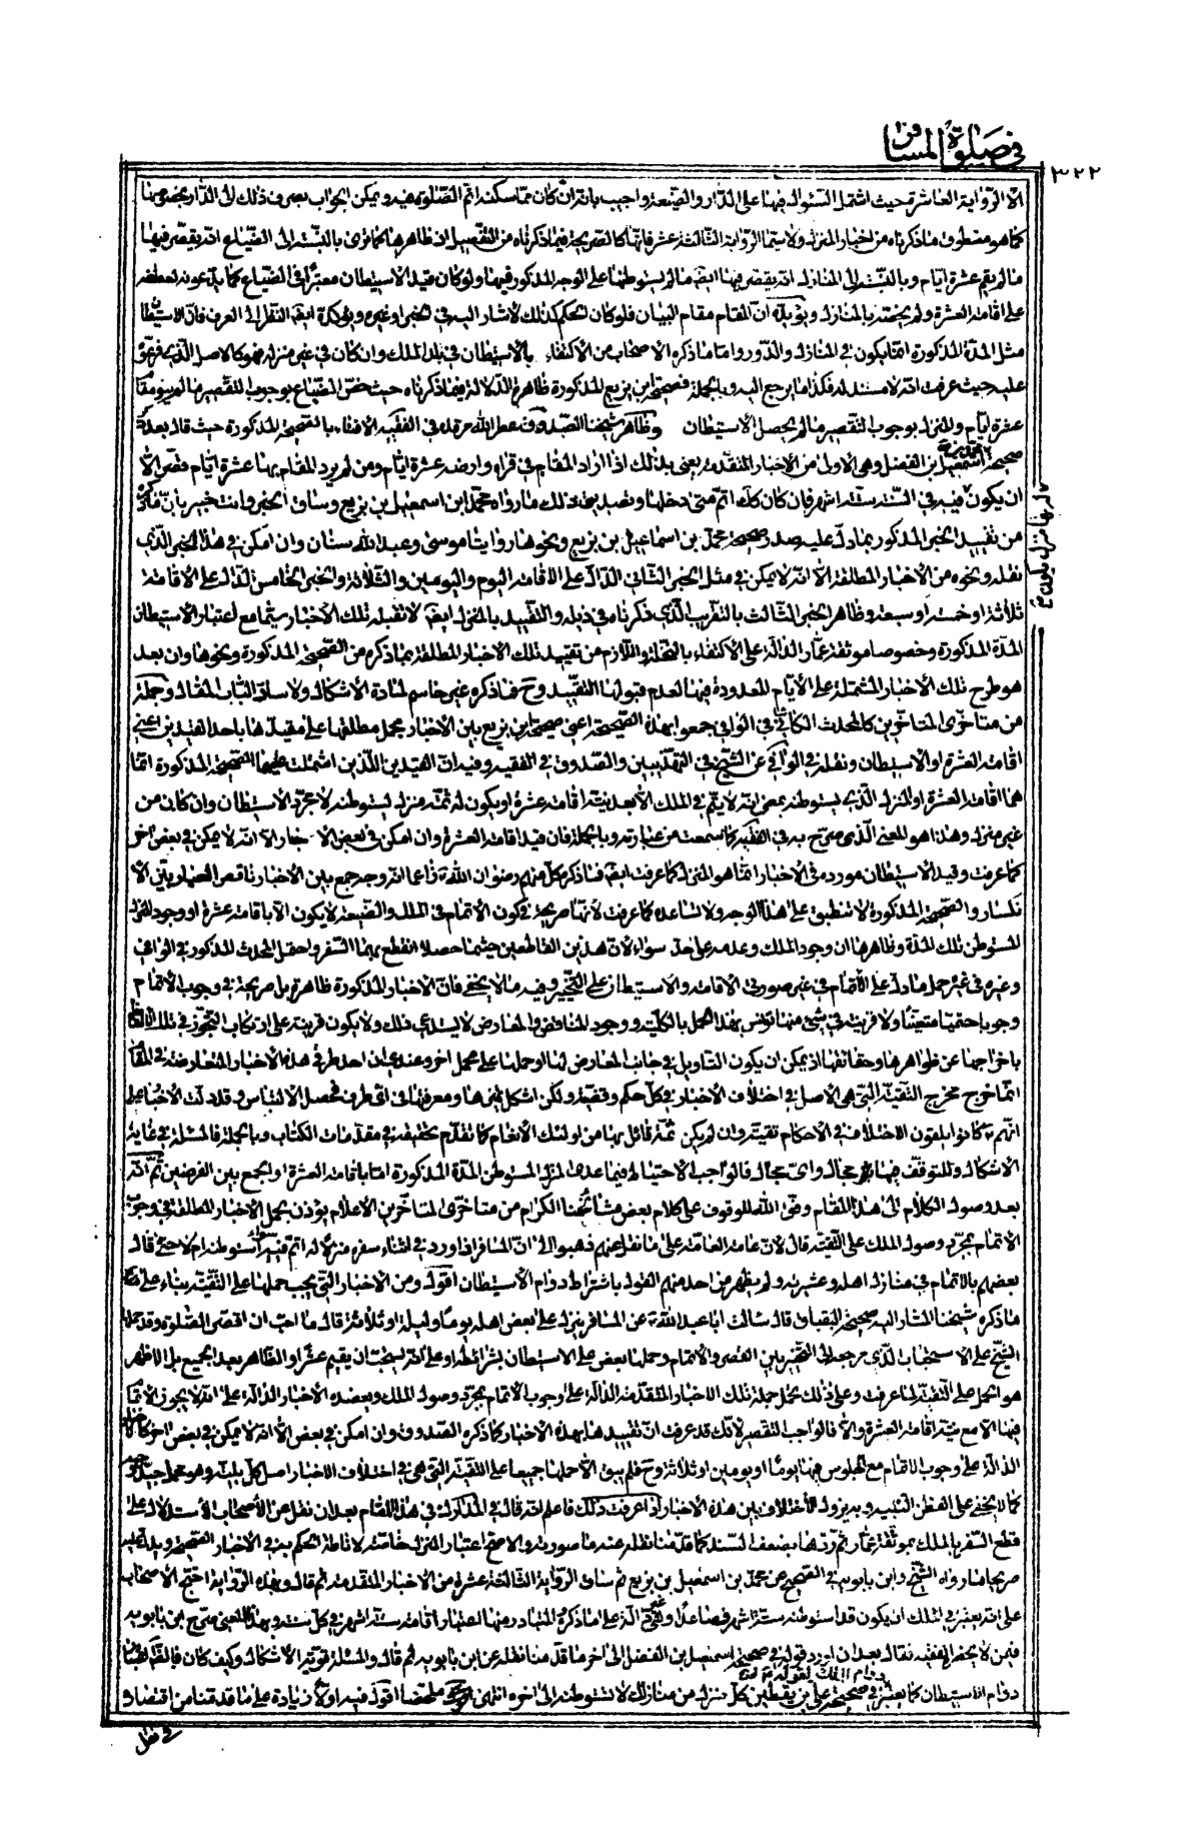 في صلوة المسافر
٣٢٢
الا الرواية العاشرة حيث اشتمل السئوال فيها على الدار والضيعة واجيب بانه ان كان مما سكنه اتم الصلوة فيه ويمكن الجواب بصرف ذلك الى الدار بخصوصها
كما هو منطوق ما ذكرناه من اخبار المنزل ولا سيما الرواية الثالثة عشر فانها كالصريحة فيما ذكرناه من التفصيل اذ ظاهرها كما ترى بالنسبة الى الضياع انه يقصر فيها
ما لم يقم عشرة ايام وبالنسبة الى المنازل انه يقصر فيها ايضا ما لم يستوطنها على الوجه المذكور فيها ولو كان قيد الاستيطان معتبرا في الضياع كما يدعونه لعطفه
على اقامة العشرة ولم يخصه بالمنازل ويؤيده ان المقام مقام البيان فلو كان الحكم كذلك لاشار اليه في الخبر او غيره ويؤيده ايضا النظر الى العرف فان الاستيطان
مثل المدة المذكورة انما يكون في المنازل والدور واما ما ذكره الاصحاب من الاكتفاء بالاستيطان في بلد الملك وان كان في غير منزله فهو كالاصل الذي فرعوه
عليه حيث عرفت انه لا مستند له فكذا ما يرجع اليه وبالجملة فصحيحة ابن بزيع المذكورة ظاهرة الدلالة فيما ذكرناه حيث خص الضياع بوجوب التقصير ما لم ينو مقام
عشرة ايام والمنزل بوجوب التقصير ما لم يحصل الاستيطان وظاهر شيخنا الصدوق عطر الله مرقده في الفقيه الافتاء بالصحيحة المذكورة حيث قال بعد ذكر
صحيحة اسمعيل بن الفضل وهي الاولى من الاخبار المتقدمة يعني بذلك اذا اراد المقام في قراه وارضه عشرة ايام ومن لم يرد المقام بها عشرة ايام قصر الا
ان يكون فيه في السنة ستة اشهر فان كان كك اتم متى دخلها وتصديق ذلك ما رواه محمد بن اسمعيل بن بزيع وساق الخبر وانت خبير بان ما ذكره
من تقييد الخبر المذكور بما دل عليه صدر صحيحة محمد بن اسماعيل بن بزيع ونحوها روايتا موسى وعبد الله بن سنان وان امكن في هذا الخبر الذي
نقله ونحوه من الاخبار المطلقة الا انه لا يمكن في مثل الخبر الثاني الدال على الاقامة اليوم واليومين والثلاثة والخبر الخامس الدال على الاقامة
ثلاثة او خمسة او سبعة وظاهر الخبر الثالث بالتقريب الذي ذكرناه في ذيله والتقييد بالمنزل ايضا لا تقبله تلك الاخبار سيما مع اعتبار الاستيطان
المدة المذكورة وخصوصا موثقة عمار الدالة على الاكتفاء بالنخلة واللازم من تقييد تلك الاخبار المطلقة بما ذكره من الصحيحة المذكورة ونحوها وان بعد
هو طرح تلك الاخبار المشتملة على الايام المعدودة فيها لعدم قبولها التقييد وح فما ذكره غير حاسم لمادة الاشكال ولا ساد لباب المقال وجملة
من متاخري المتاخرين كالمحدث الكاشاني في الوافي جمعوا بهذه الصحيحة اعني صحيحة ابن بزيع بين الاخبار بحمل مطلقها على مقيدها باحد القيدين اعني
اقامة العشرة او الاستيطان ونقله في الوافي عن الشيخ في التهذيبين والصدوق في الفقيه وفيه ان القيدين اللذين اشتملت عليهما الصحيحة المذكورة انما
هما اقامة العشرة او المنزل الذي يستوطنه بمعنى انه لا يتم في الملك الا بعد نية اقامة عشرة او يكون له ثمة منزل يستوطنه لا مجرد الاستيطان وان كان من
غير منزل وهذا هو المعنى الذي صرح به في الفقيه كما سمعت من عبارته وبالجملة فان قيد اقامة العشرة وان امكن في بعض الاخبار الا انه لا يمكن في بعض اخر
كما عرفت وقيد الاستيطان مورده في الاخبار انما هو المنزل كما عرفت ايضا فما ذكره كل منهم رضوان الله عليه زاعما انه وجه جمع بين الاخبار ناقص العيار بين الا
نكسار والصحيحة المذكورة لا تنطبق على هذا الوجه ولا تساعده كما عرفت لانها صريحة في كون الاتمام في الملك والضيعة لا يكون الا باقامة عشرة او وجود المنزل
المستوطن تلك المدة وظاهرها ان وجود الملك وعدمه على حد سواء لان هذين القاطعين حيثما حصلا انقطع بهما السفر واحتمل المحدث المذكور في الوافي
وغيره في غيره حمل ما دل على الاتمام في غير صورتي الاقامة والاستيطان على التخيير وفيه ما لا يخفى فان الاخبار المذكورة ظاهرة بل صريحة في وجوب الاتمام
وجوبا حتميا متعينا ولا قرينة في شيء منها تونس بهذا الحمل بالكلية ووجود المناقض والمعارض لا يستدعي ذلك ولا يكون قرينة على ارتكاب التجوز في تلك الاخبار
باخراجها عن ظواهرها وحقائقها اذ يمكن ان يكون التاويل في جانب المعارض لها او حملها على محمل اخر وعندي ان احد طرفي هذه الاخبار المتعارضة في المقام
انما خرج مخرج التقية التي هي الاصل في اختلاف الاخبار في كل حكم وقضية ولكن اشكل تميزها ومعرفتها في اي طرف فحصل الالتباس وقد دلت الاخبار على
انهم ع كانوا يلقون الاختلاف في الاحكام تقية وان لم يكن ثمة قائل بها من اولئك الانغام كما تقدم تحقيقه في مقدمات الكتاب وبالجملة فالمسئلة في غاية
الاشكال وللتوقف فيها مجال واي مجال فالواجب الاحتياط فيما عدا المنزل المستوطن المدة المذكورة اما باقامة العشرة او الجمع بين الفرضين ثم انه
بعد وصول الكلام الى هذا المقام وفق الله للوقوف على كلام بعض مشائخنا الكرام من متاخري المتاخرين الاعلام يؤذن بحمل الاخبار المطلقة في وجوب
الاتمام بمجرد وصول الملك على التقية قال لان عامة العامة على ما نقل عنهم ذهبوا الى ان المسافر اذا ورد في اثناء سفره منزلا له اتم فيه سواء استوطنه ام لا حتى قال
بعضهم بالاتمام في منازل اهله وعشيرته ولم يظهر من احد منهم القول باشتراط دوام الاستيطان اقول ومن الاخبار التي يجب حملها على التقية بناء على
ما ذكره شيخنا المشار اليه صحيحة البقباق قال سالت ابا عبد الله ع عن المسافر ينزل على بعض اهله يوما وليلة او ثلاثا قال ما احب ان اقصر الصلوة وقد حملها
الشيخ على الاستحباب الذي مرجعه الى التخيير بين القصر والاتمام وحملها بعض على الاستيطان بشرائطه او على انه يستحب ان يقيم عشرا والظاهر بعد الجميع بل الاظهر
هو الحمل على التقية لما عرفت وعلى ذلك تحمل جملة تلك الاخبار المتقدمة الدالة على وجوب الاتمام بمجرد وصول الملك ويعضده الاخبار الدالة على انه لا يجوز الاتمام
فيها الا مع نية اقامة العشرة والا فالواجب التقصير لانك قد عرفت ان تقييدها بهذه الاخبار كما ذكره الصدوق وان امكن في بعض الا انه لا يمكن في بعض اخر كالاخبار
الدالة على وجوب الاتمام مع الجلوس فيها يوما او يومين او ثلاثة وح فلم يبق الا حملها جميعا على التقية التي هي في اختلاف الاخبار اصل كل بلية وهو محمل جيد
كما لا يخفى على الفطن النبيه وبه يزول الاختلاف بين هذه الاخبار اذا عرفت ذلك فاعلم انه قال في المدارك في هذا المقام بعد ان نقل عن الاصحاب الاستدلال على
قطع السفر بالملك بموثقة عمار ثم ردها بضعف السند كما قدمنا نقله عنه ما صورته والاصح اعتبار المنزل خاصة لاناطة الحكم به في الاخبار الصحيحة ويدل عليه
صريحا ما رواه الشيخ وابن بابويه في الصحيح عن محمد بن اسمعيل بن بزيع ثم ساق الرواية الثالثة عشرة من الاخبار المتقدمة ثم قال وبهذه الرواية احتج الاصحاب
على انه يعتبر في الملك ان يكون قد استوطنه ستة اشهر فصاعدا وهي غير دالة على ما ذكروه بل المتبادر منها اعتبار اقامة ستة اشهر في كل سنة وبهذا المعنى صرح ابن بابويه
فيمن لا يحضره الفقيه فقال بعد ان اورد قوله في صحيحة اسمعيل بن الفضل الى اخر ما قدمنا نقله عن ابن بابويه ثم قال والمسئلة قوية الاشكال وكيف كان فالظاهر اعتبار
دوام الاستيطان كما يعتبر دوام الملك لقوله ع في صحيحة علي بن يقطين كل منزل من منازلك لا تستوطنه الى اخره انتهى ملخصا اقول فيه اولا زيادة على ما قدمنا من اقتضاء